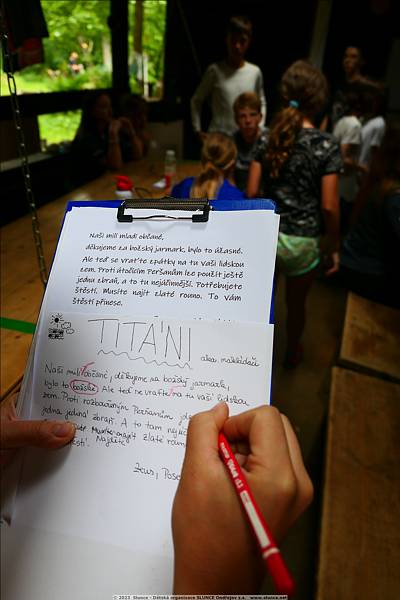 Naši milí mladí občané,
děkujeme za božský jarmark, bylo to úžasné.
Ale teď se vraťte zpátky na tu Vaši lidskou
zem. Proti útočícím Peršanům lze použít ještě
jednu zbraň, a to tu nejúčinnější. Potřebujete
štěstí. Musíte najít zlaté rouno. To Vám
štěstí přinese.
TITÁNI
Naši milí občané, děkujeme za božský jarmark,
bylo to božské. Ale teď se vraťte na tu Vaši lidskou
zem. Proti rozbouřeným Peršanům
jedna jediná zbraň. A to tam
Musíte najít zlaté
Najděte
Zeus, Pose
© 2023 Slunce - Dětská organizace SLUNCE Ondřejov z.s. www.slunce.net